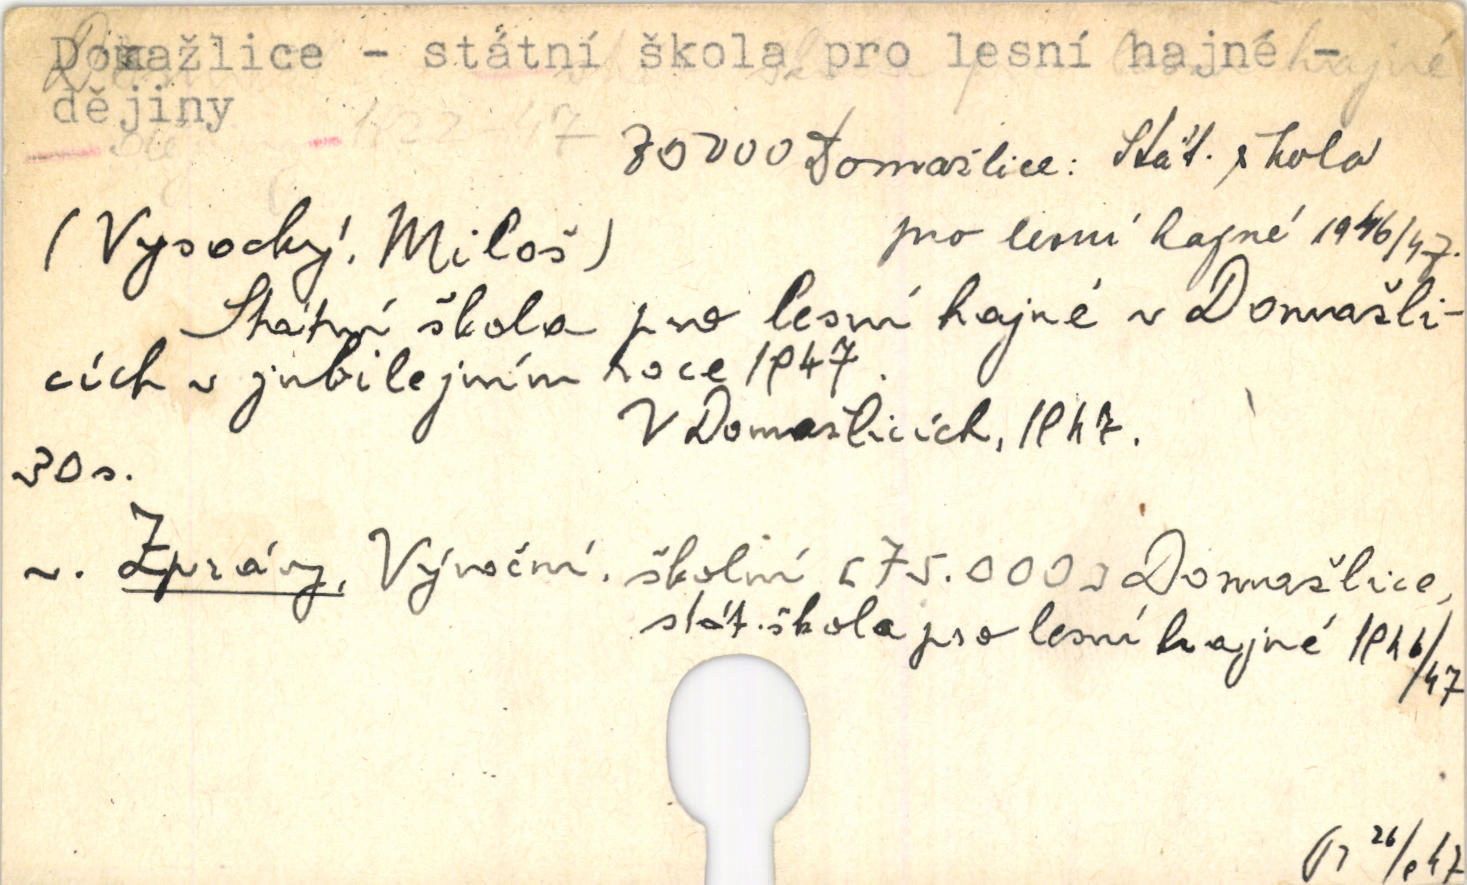 Domažlice - státní škola pro lesní hajné -
dějiny
1822-47
Domažlice: Stát. škola
(Vysocký, Miloš) pro lesní hajné 1946/47.
Státní škola pro lesní hajné v Domažli-
cích v jubilejním roce 1947.
V Domažlicích, 1947.
30 s.
v. Zprávy, Výroční. školní [75.000] Domažlice,
stát. škola pro lesní hajné 1946/47